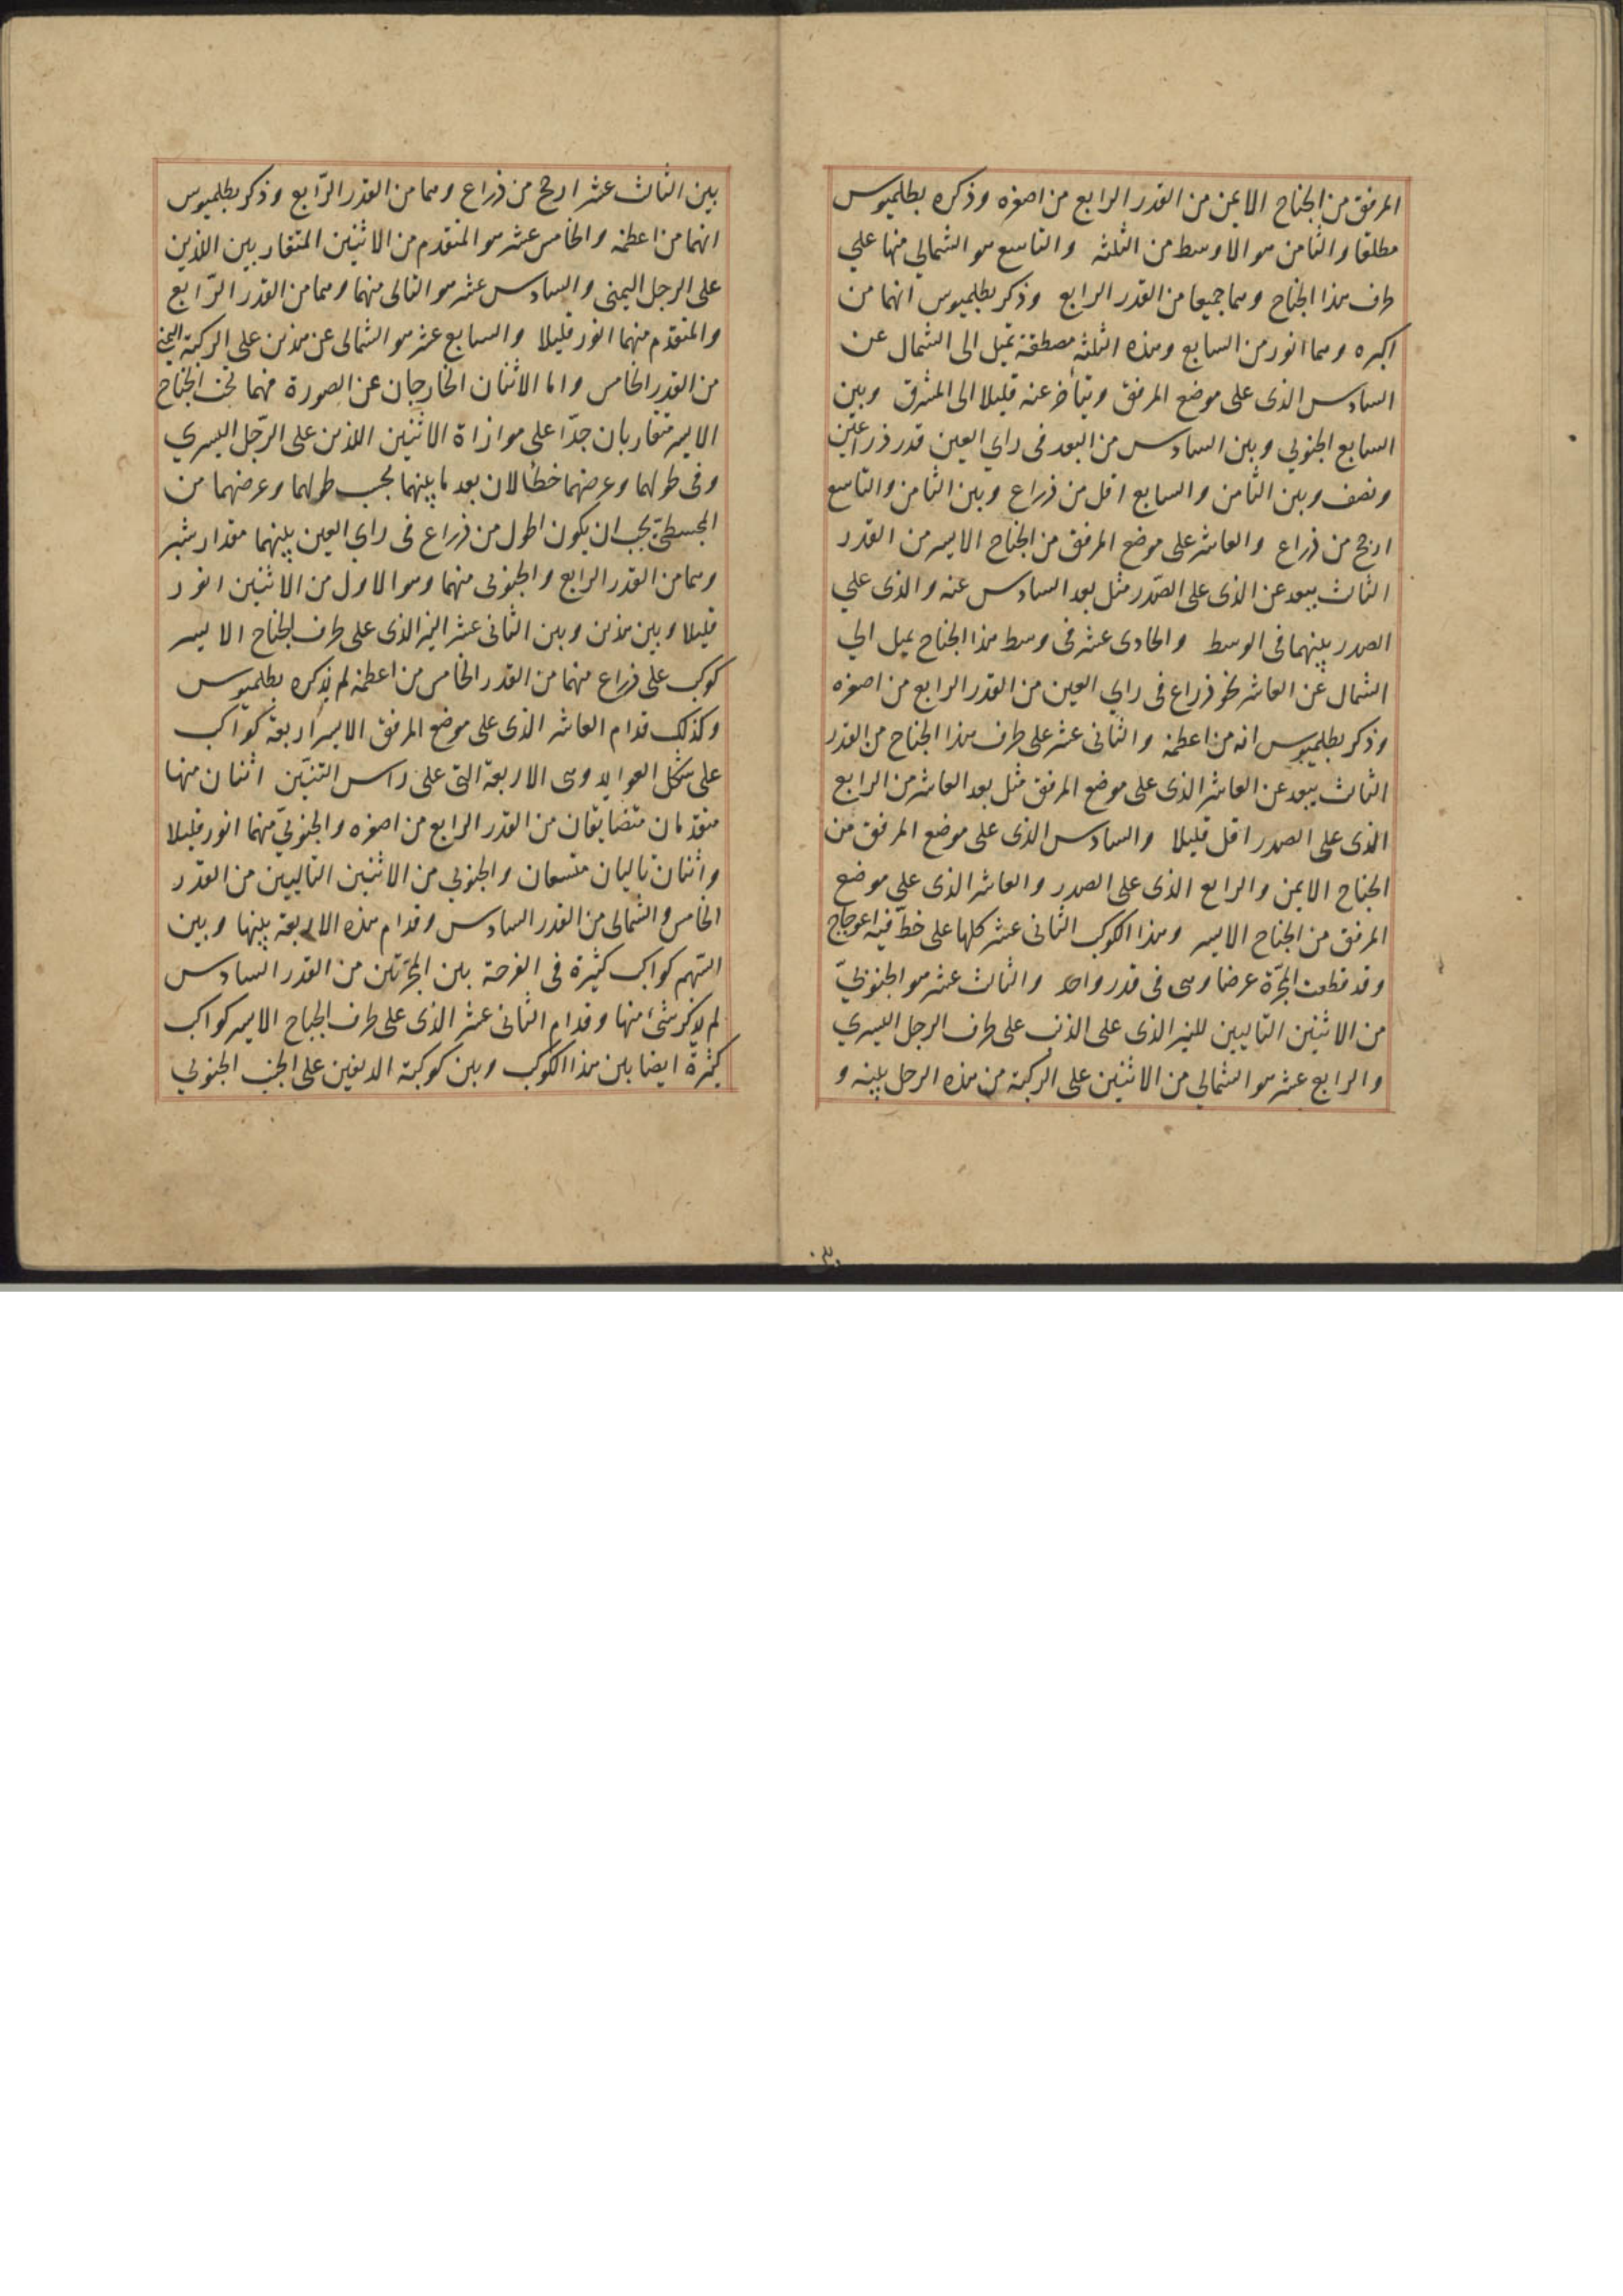 المرفق من الجناح الايمن من القدر الرابع من اصغره وذكره بطلميوس
مطلقا والثامن هو الاوسط من الثلثه والتاسع هو الشمالي منها علي
طرف هذا الجناح وهما جميعا من القدر الرابع وذكر بطلميوس انهما من
اكبره وهما انور من السابع وهذه الثلثه مصطفة تميل الى الشمال عن
السادس الذى على موضع المرفق ويتأخر عنه قليلا الى المشرق وبين
السابع الجنوبي وبين السادس من البعد فى راي العين قدر ذراعين
ونصف وبين الثامن والسابع اقل من ذراع وبين الثامن والتاسع
ارجح من ذراع والعاشر على موضع المرفق من الجناح الايسر من القدر
الثالث يبعد عن الذى على الصّدر مثل بعد السادس عنه والذى علي
الصدر بينهما فى الوسط والحادى عشر فى وسط هذا الجناح يميل الي
الشمال عن العاشر نحو ذراع فى راي العين من القدر الرابع من اصغره
وذكر بطلميوس انه من اعظمه والثانى عشر على طرف هذا الجناح من القدر
الثالث يبعد عن العاشر الذى على موضع المرفق مثل بعد العاشر من الرابع
الذى على الصدر اقل قليلا والسادس الذى على موضع المرفق من
الجناح الايمن والرابع الذى على الصدر والعاشر الذى علي موضع
المرفق من الجناح الايسر وهذا الكوكب الثانى عشر كلها على خطّ فيه اعوجاج
وقد قطعت المجرّة عرضا وهى فى قدر واحد والثالث عشر هو الجنوبيّ
من الاثنين التاليين للنير الذى على الذنب على طرف الرجل اليسري
والرابع عشر هو الشمالي من الاثنين على الركبة من هذه الرجل بينه و
بين الثالث عشر ارجح من ذراع وهما من القدر الرّابع وذكر بطلميوس
انهما من اعظمه والخامس عشر هو المتقدم من الاثنين المتقاربين اللذين
على الرجل اليمنى والسادس عشر هو التالى منهما وهما من القدر الرّابع
والمتقدّم منهما انور قليلا والسابع عشر هو الشمالى عن هذين علي الركبة اليمنى
من القدر الخامس واما الاثنان الخارجان عن الصورة فهما تحت الجناح
الايسر متقاربان جدّا على موازاة الاثنين اللذين على الرّجل اليسري
وفى طولهما وعرضهما خطأ لان بعد ما بينهما بحسب طولهما وعرضهما من
المجسطىّ يجب ان يكون اطول من ذراع فى راي العين بينهما مقدار شبر
وهما من القدر الرابع والجنوبى منهما وهو الاول من الاثنين انور
قليلا وبين هذين وبين الثانى عشر النير الذى على طرف الجناح الايسر
كوكب على ذراع منهما من القدر الخامس من اعظمه لم يذكره بطلميوس
وكذلك قدام العاشر الذى على موضع المرفق الايسر اربعة كواكب
على شكل العوايد وهى الاربعة التى على راس التنيّن اثنان منها
متقدمان متضايقان من القدر الرابع من اصغره والجنوبيّ منهما انور قليلا
واثنان تاليان متسعان والجنوبي من الاثنين التاليين من القدر
الخامس والشمالى من القدر السادس وقدام هذه الاربعة بينها وبين
السّهم كواكب كثيرة فى الفرجة بين المجرّتين من القدر السادس
لم يذكر شئ منها وقدام الثانى عشر الذى على طرف الجناح الايسر كواكب
كثيرة ايضا بين هذا الكوكب وبين كوكبة الدلفين على الجنب الجنوبي